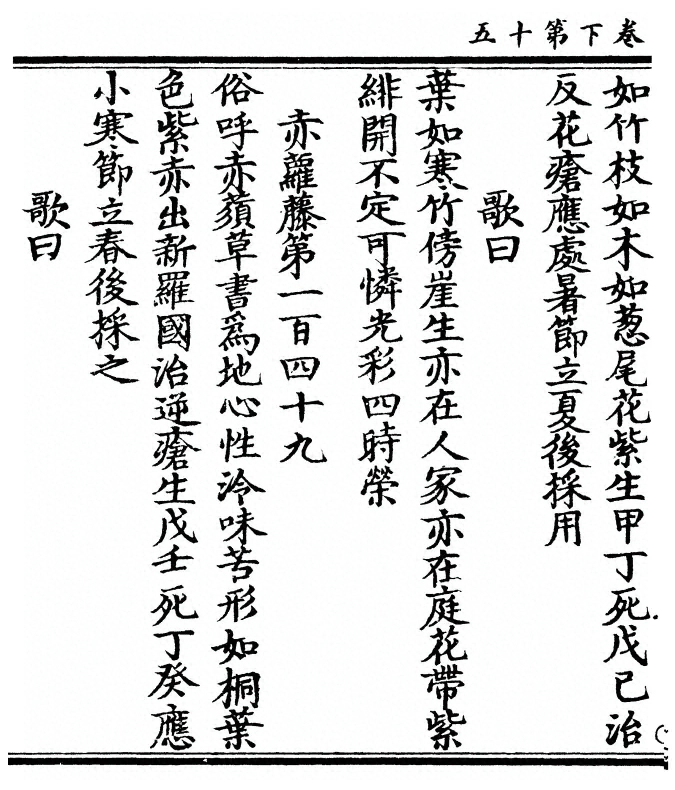 卷下第十五
如竹枝如木如葱尾花紫生甲丁死戊己治
反花瘡應處暑節立夏後採用
歌曰
葉如寒竹傍崖生亦在人家亦在庭花帶紫
緋開不定可憐光彩四時榮
赤蘿藤第一百四十九
俗呼赤蘋草書爲地心性泠味苦形如桐葉
色紫赤出新羅國治逆瘡生戊壬死丁癸應
小寒節立春後採之
歌曰